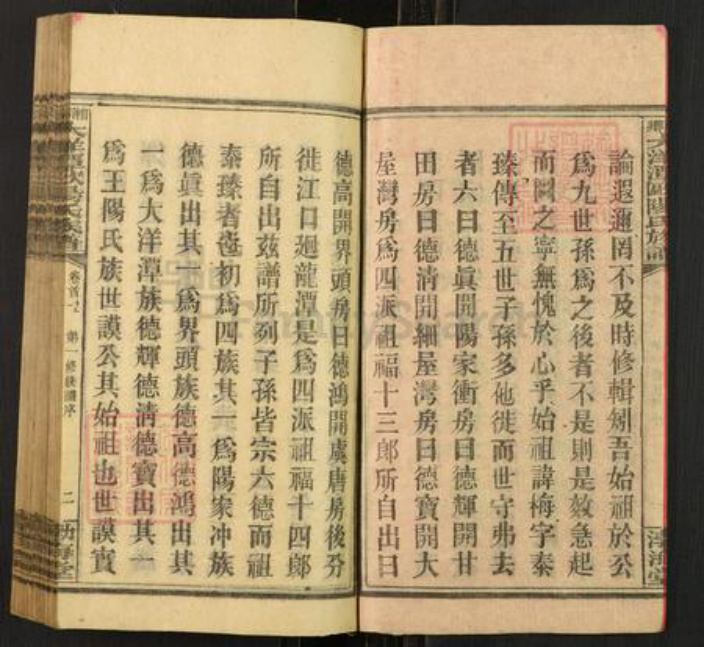 論遐邇罔不及時修輯矧吾始祖於公
爲九世孫爲之後者不是則是效急起
而圖之寧無愧於心乎始祖諱梅字秦
臻傳至五世子孫多他徙而世守弗去
者六曰德眞開陽家衝房曰德輝開甘
田房曰德淸開細屋灣房曰德寶開大
屋灣房爲四派祖福十三郎所自出曰
德高開界頭房曰德鴻開虞唐房後分
徙江口廻龍潭是爲四派祖福十四郎
所自出玆譜所列子孫皆宗六德而祖
秦臻者也初爲四族其一爲陽家冲族
德眞出其一爲界頭族德高德鴻出其
一爲大洋潭族德輝德淸德寶出其一
爲王陽氏族世謨公其始祖也世謨實
卷首一之 第一修後續序
二